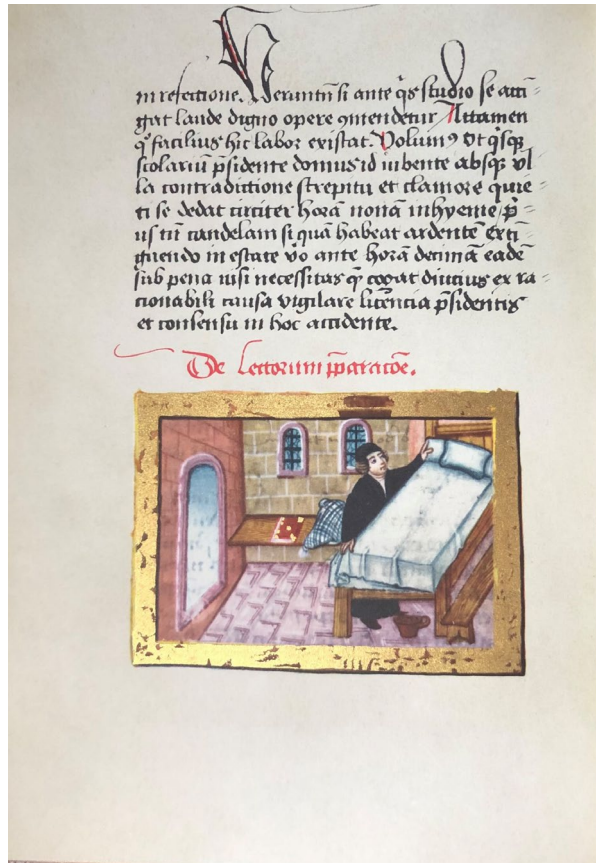 in refectione. Veruntn̄ si ante q̄s studio se acci⸗
gat laude digno opere ꝯmendetur Attamen
q̊ facilius hic labor existat. Volumꝯ vt q̄sqꝫ
scolariū p̄sidente domus id iubente absqꝫ vl
la contradictione strepitu et clamore quie⸗
ti se dedat circiter horā nonā in hyeme p̄⸗
us tn̄ candelam si quā habeat ardentē exti⸗
guendo in estate v̊o ante horā decimā eadē
sub pena nisi necessitas q̄ cogat diucius ex ra⸗
cionabili causa vigilare licēncia p̄sidentis
et consensu in hoc accidente.
De lectorum p̄paracōe.